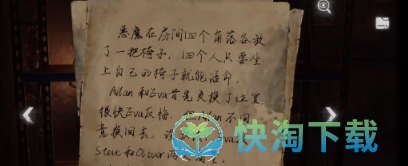 恶魔在房间四个角落各放
了一把椅子，四个人只要坐
上自己的椅子就能活命。
Allan和Eva首先交换了位置
很快Eva反悔， 不同
意换回去，
Steve和Oliver
快淘下载